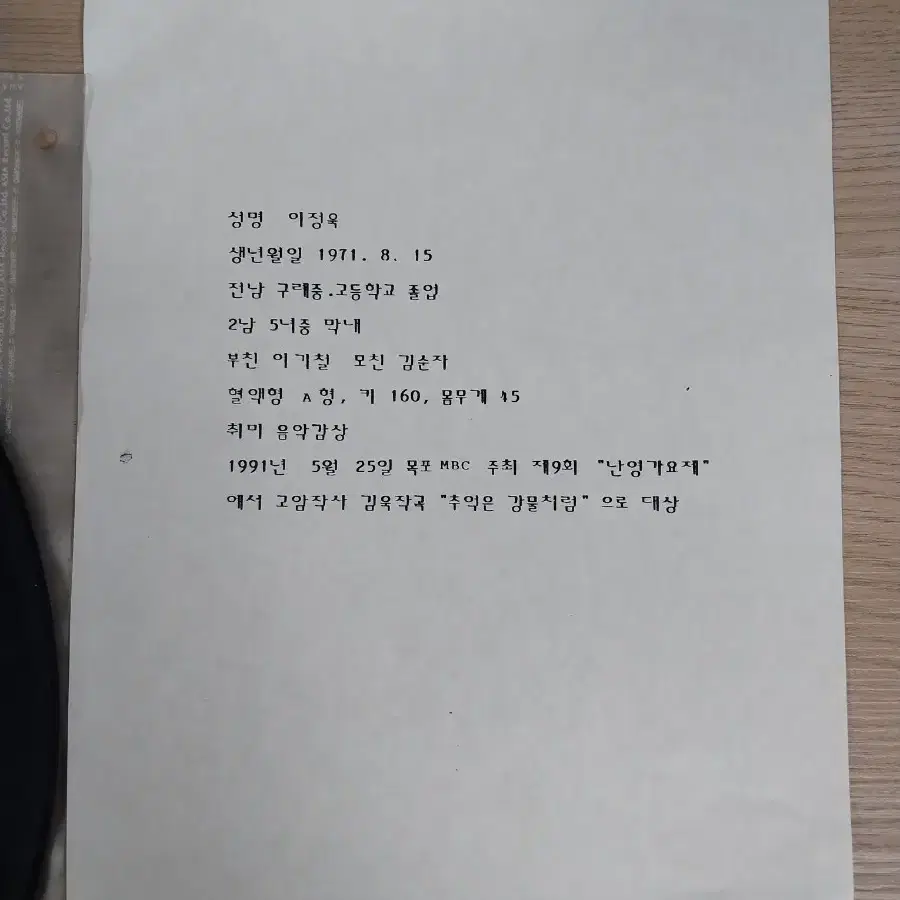 성명 이정욱
생년월일 1971. 8. 15
전남 구례중.고등학교 졸업
2남 5녀중 막내
부친 이기철 모친 김순자
혈액형 A형, 키 160, 몸무게 45
취미 음악감상
1991년 5월 25일 목포MBC 주최 제9회 "난영가요제"
에서 고암작사 김욱작곡 "추억은 강물처럼" 으로 대상